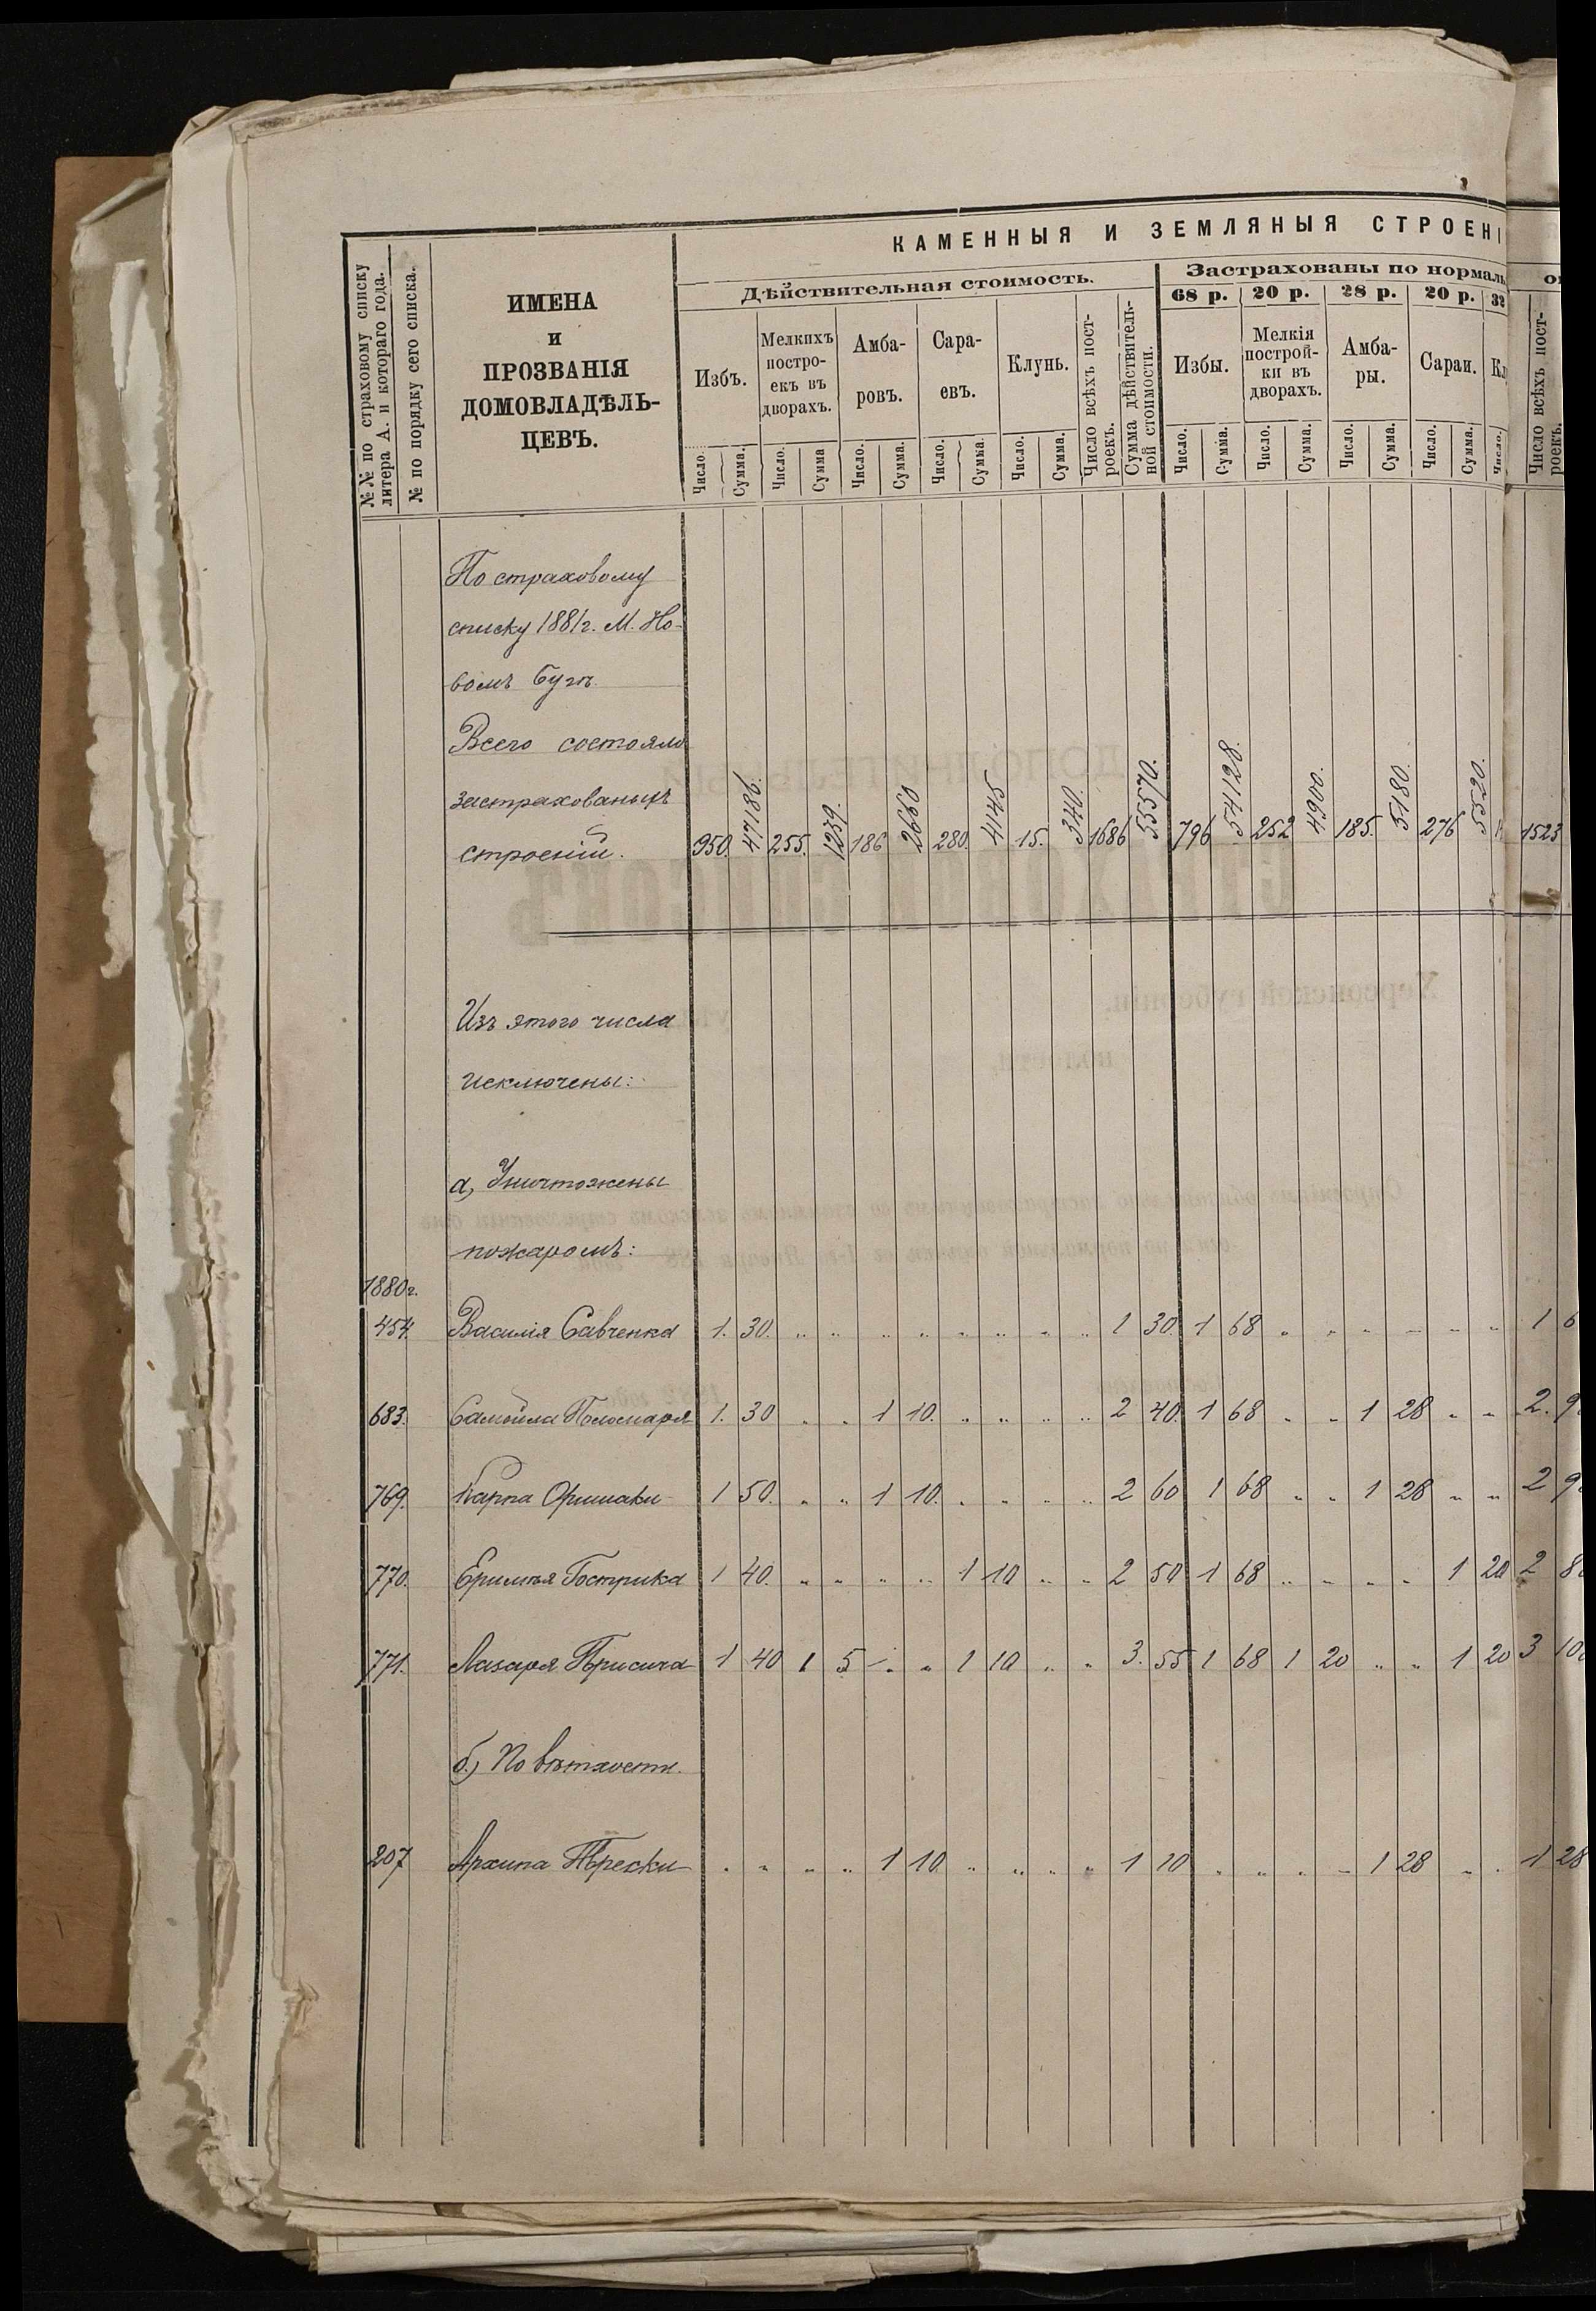 КАМЕННЫЯ И ЗЕМЛЯНЫЯ СТРОЕНІ
№№ по страховому списку литера А. и котораго года.
№ по порядку сего списка.
ИМЕНА
и
ПРОЗВАНІЯ
ДОМОВЛАДѢЛЬ-
ЦЕВЪ.
Дѣйствительная стоимость.
Застрахованы по нормаль
68 р. 20 р. 28 р. 20 р. 32
Избъ. Мелкихъ постро- екъ въ дворахъ. Амба- ровъ. Сара- евъ. Клунь. Число всѣхъ пост- роекъ. Сумма дѣйствитель- ной стоимости. Избы. Мелкія построй- ки въ дворахъ. Амба- ры. Сараи. Кл Число всѣхъ пост- роекъ.
Число. Сумма. Число. Сумма Число. Сумма. Число. Сумма. Число. Сумма. Число. Сумма. Число. Сумма. Число. Сумма. Число. Сумма. Число.
По страховому
списку 1881г. М. Но-
вомъ Бугѣ
Всего состояло
застрахованыхъ
строеній. 950. 47186. 255. 1239. 186 2660 280. 4145 15. 340. 1686 55570. 796 54128. 252 4900. 185. 5180. 276 5520. 1523
Изъ этого числа
исключены:
а, Уничтожены
пожаромъ:
1880г.
454. Василія Савченка 1. 30. „ „ „ „ „ „ „ „ 1 30 1 68 „ „ „ „ „ „ 1 6
683. Самойла 1. 30 „ „ 1 10. „ „ „ „ 2 40. 1 68 „ „ 1 28 „ „ 2. 9
769. Карпа 1 50. „ „ 1 10. „ „ „ „ 2 60 1 68 „ „ 1 28 „ „ 2 9
770. Гострика 1 40. „ „ „ „ 1 10 „ „ 2 50 1 68 „ „ „ „ 1 20 2 8
771. Лазаря 1 40 1 5 „ „ 1 10 „ „ 3. 55 1 68 1 20 „ „ 1 20 3 10
б.) По вѣтхости.
207 Архипа „ „ „ „ 1 10 „ „ „ „ 1 10 „ „ „ „ 1 28 „ „ 1 28